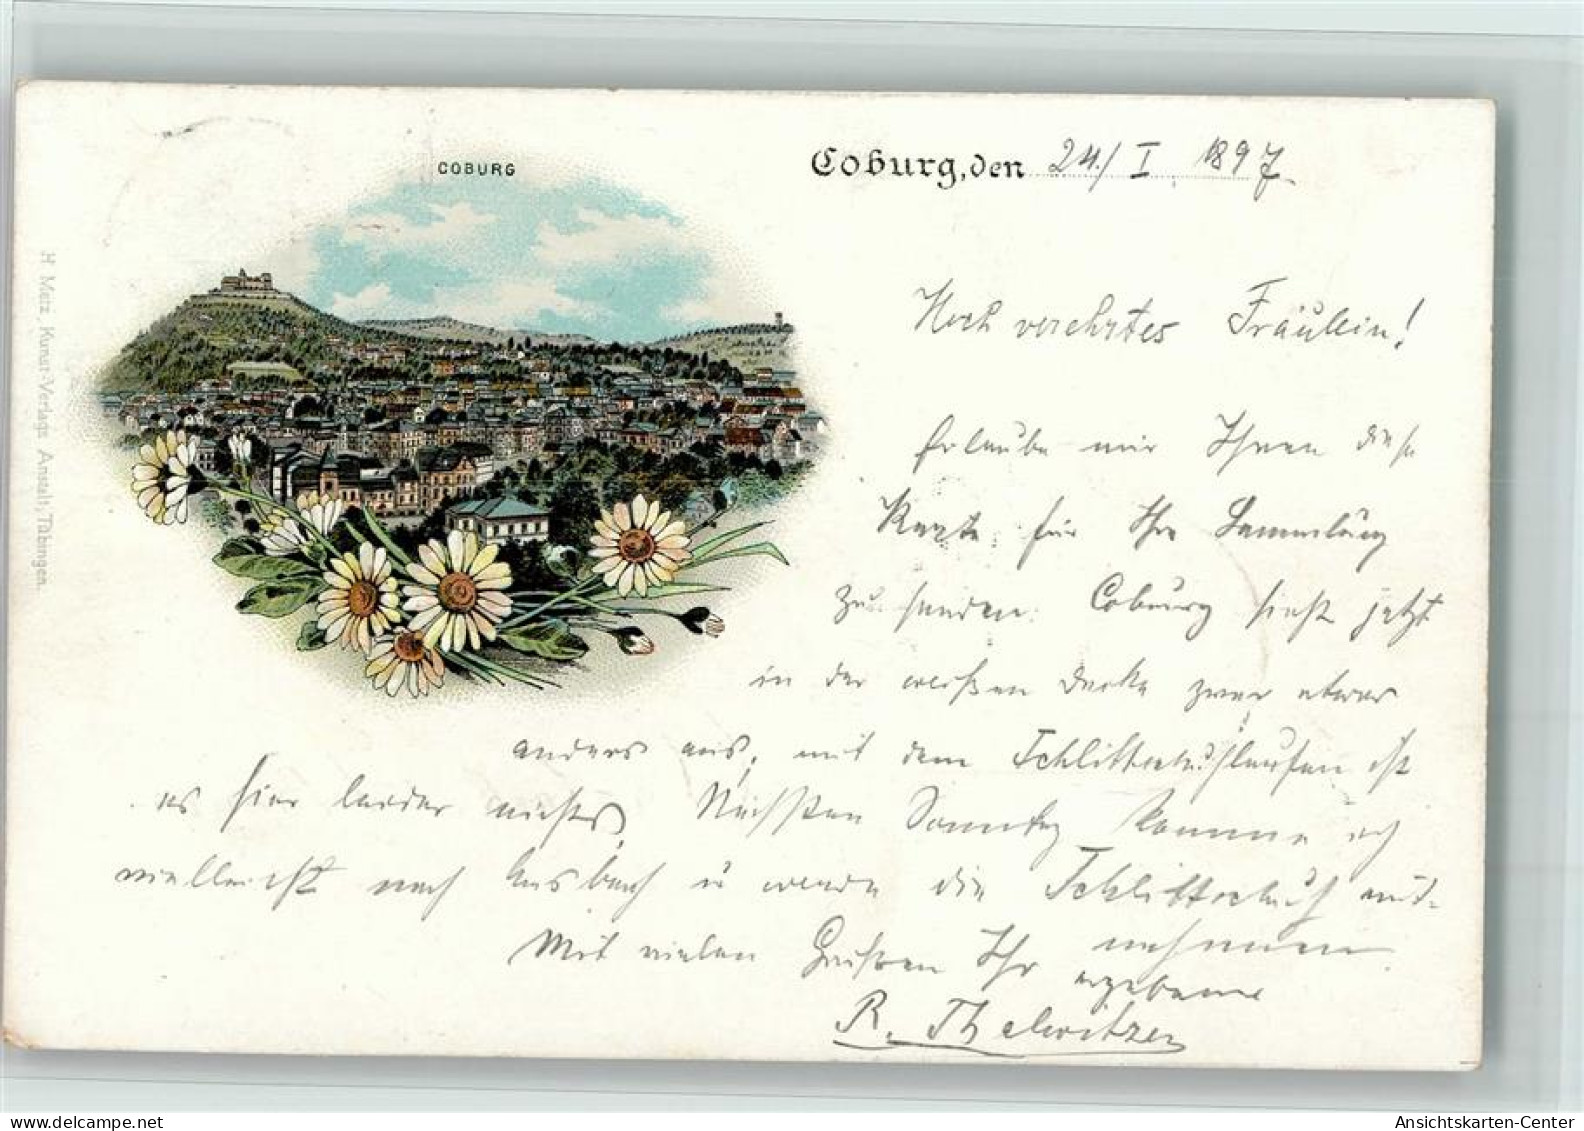 COBURG
Coburg, den 24./I. 1897.
H. Metz, Kunst-Verlags-Anstalt, Tübingen.
Hoch verehrtes Fräulein!
Erlaube mir Ihnen diese
Karte für Ihre Sammlung
zu senden. Coburg sieht jetzt
in der weißen Decke zwar etwas
anders aus, mit dem Schlittschuhlaufen ist
es hier leider nichts. Nächsten Sonntag komme ich
vielleicht nach Ansbach u werde die Schlittschuh mit-
nehmen.
Mit vielen Grüßen Ihr
ergebener
R.
delcampe.net
Ansichtskarten-Center